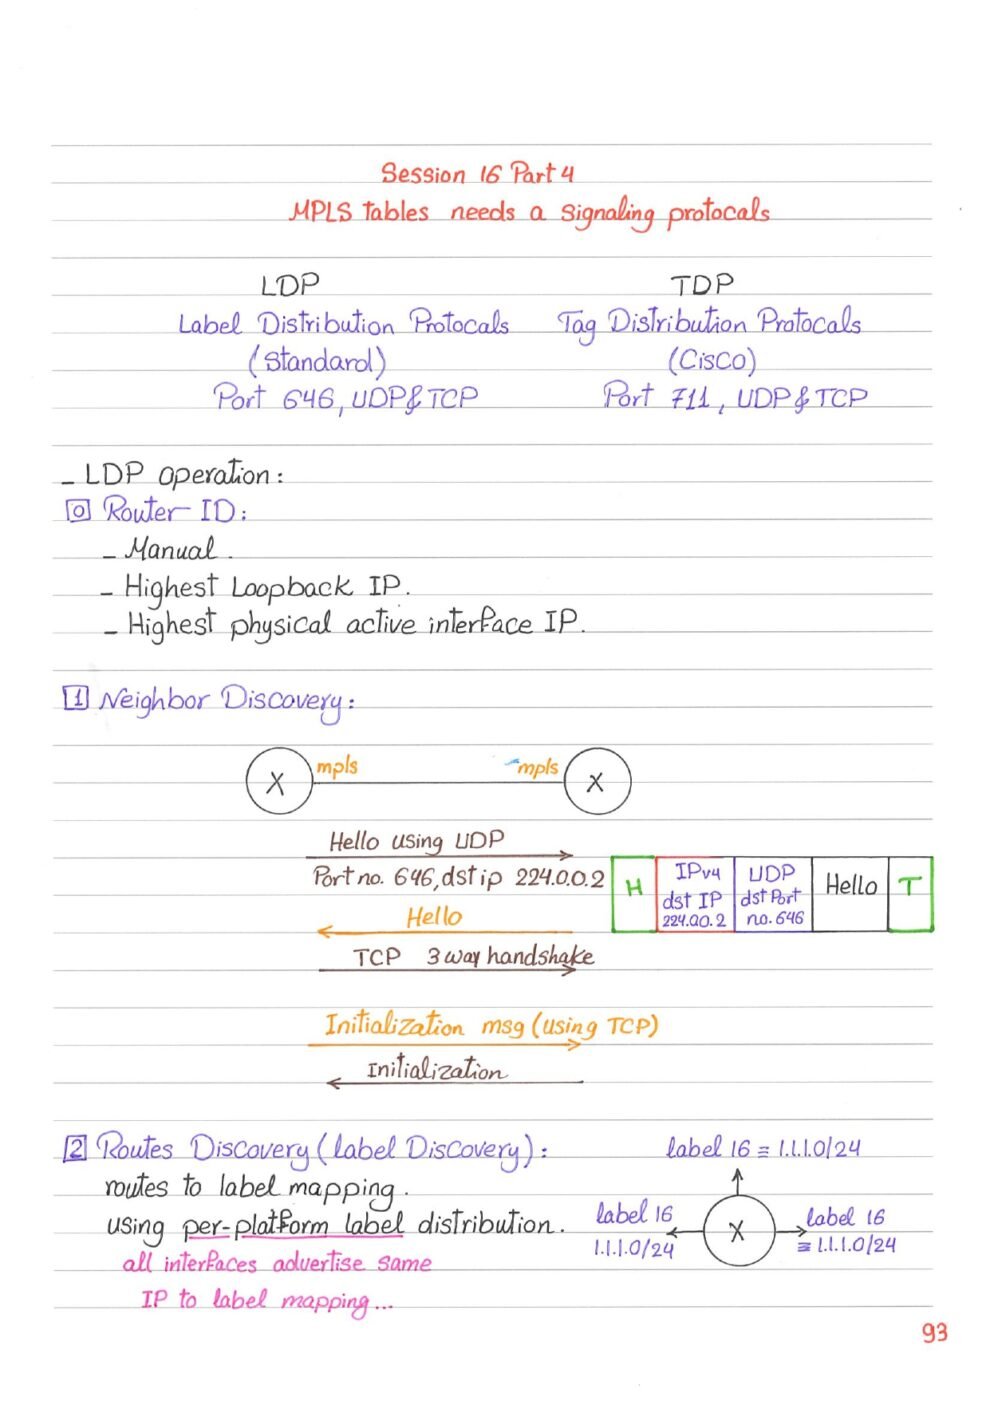 Session 16 Part 4
MPLS tables needs a signaling protocals
LDP
Label Distribution Protocals
(Standard)
Port 646, UDP & TCP
TDP
Tag Distribution Protocals
(Cisco)
Port 711, UDP & TCP
- LDP operation:
0 Router ID:
- Manual.
- Highest Loopback IP.
- Highest physical active interface IP.
1 Neighbor Discovery:
X mpls mpls X
Hello using UDP
Port no. 646, dst ip 224.0.0.2
Hello
TCP 3 way handshake
H
IPv4
dst IP
224.0.0.2
UDP
dst Port
no. 646
Hello
T
Initialization msg (using TCP)
Initialization
2 Routes Discovery (label Discovery):
routes to label mapping.
using per-platform label distribution.
all interfaces advertise same
IP to label mapping...
label 16 ≡ 1.1.1.0/24
label 16
1.1.1.0/24
X
label 16
≡ 1.1.1.0/24
93